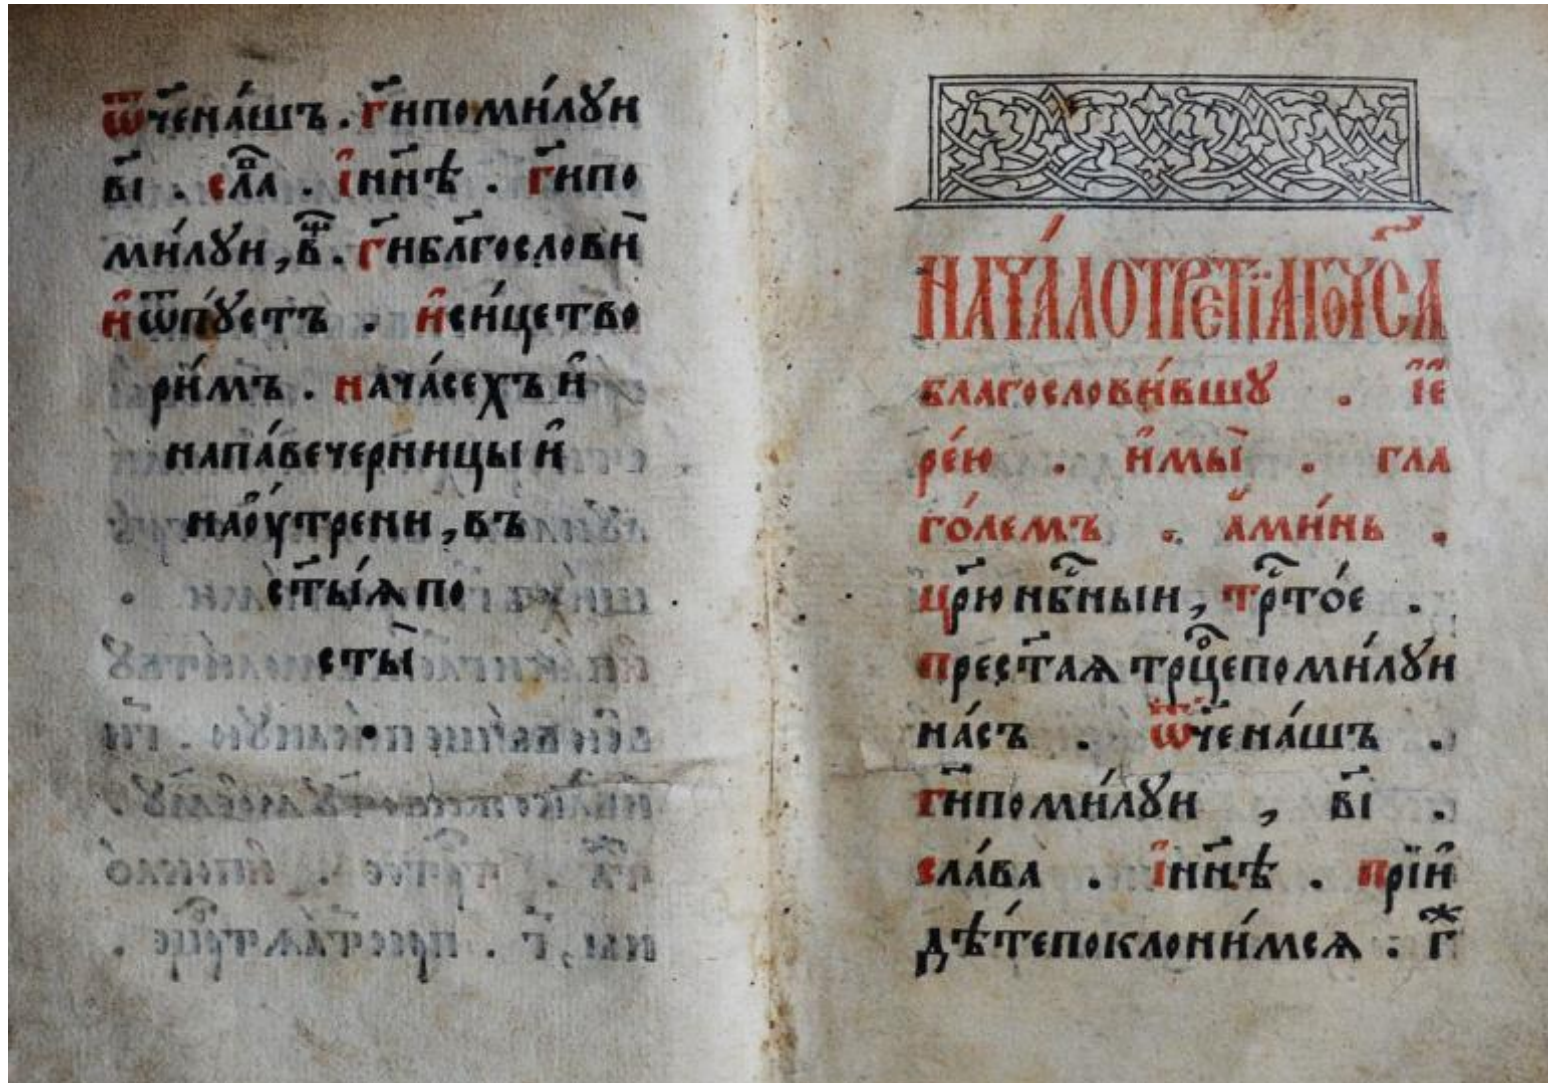 Ѿч҃ена́шъ . гⷭ҇ипоми́лꙋи
в҃і . сл҃а . і҆нн҃ѣ . гⷭ҇ипо
ми́лꙋи , в҃ . гⷭ҇ибл҃гослови
и҆ѿпꙋ́стъ . и҆си́цетво
ри́мъ . нача́сехъ и҆
напа́вечерницы и҆
наѻу҆́трени , въ
ст҃ы́ѧ по
сты̀
НАЧА́ЛОТРЕТІАГОЧСⷭ҇А
благослови́вшꙋ . і҆е
ре́ю . и҆мы̀ . гла
го́лемъ . а҆ми́нь .
цр҃юнбⷭ҇ныи , трⷭ҇то́е .
прест҃аѧ трⷪ҇цепоми́лꙋи
на́съ . ѿч҃ена́шъ .
гⷭ҇ипоми́лꙋи , в҃і .
сла́ва . і҆нн҃ѣ . прїи
дѣ́тепоклони́мсѧ . гⷤ